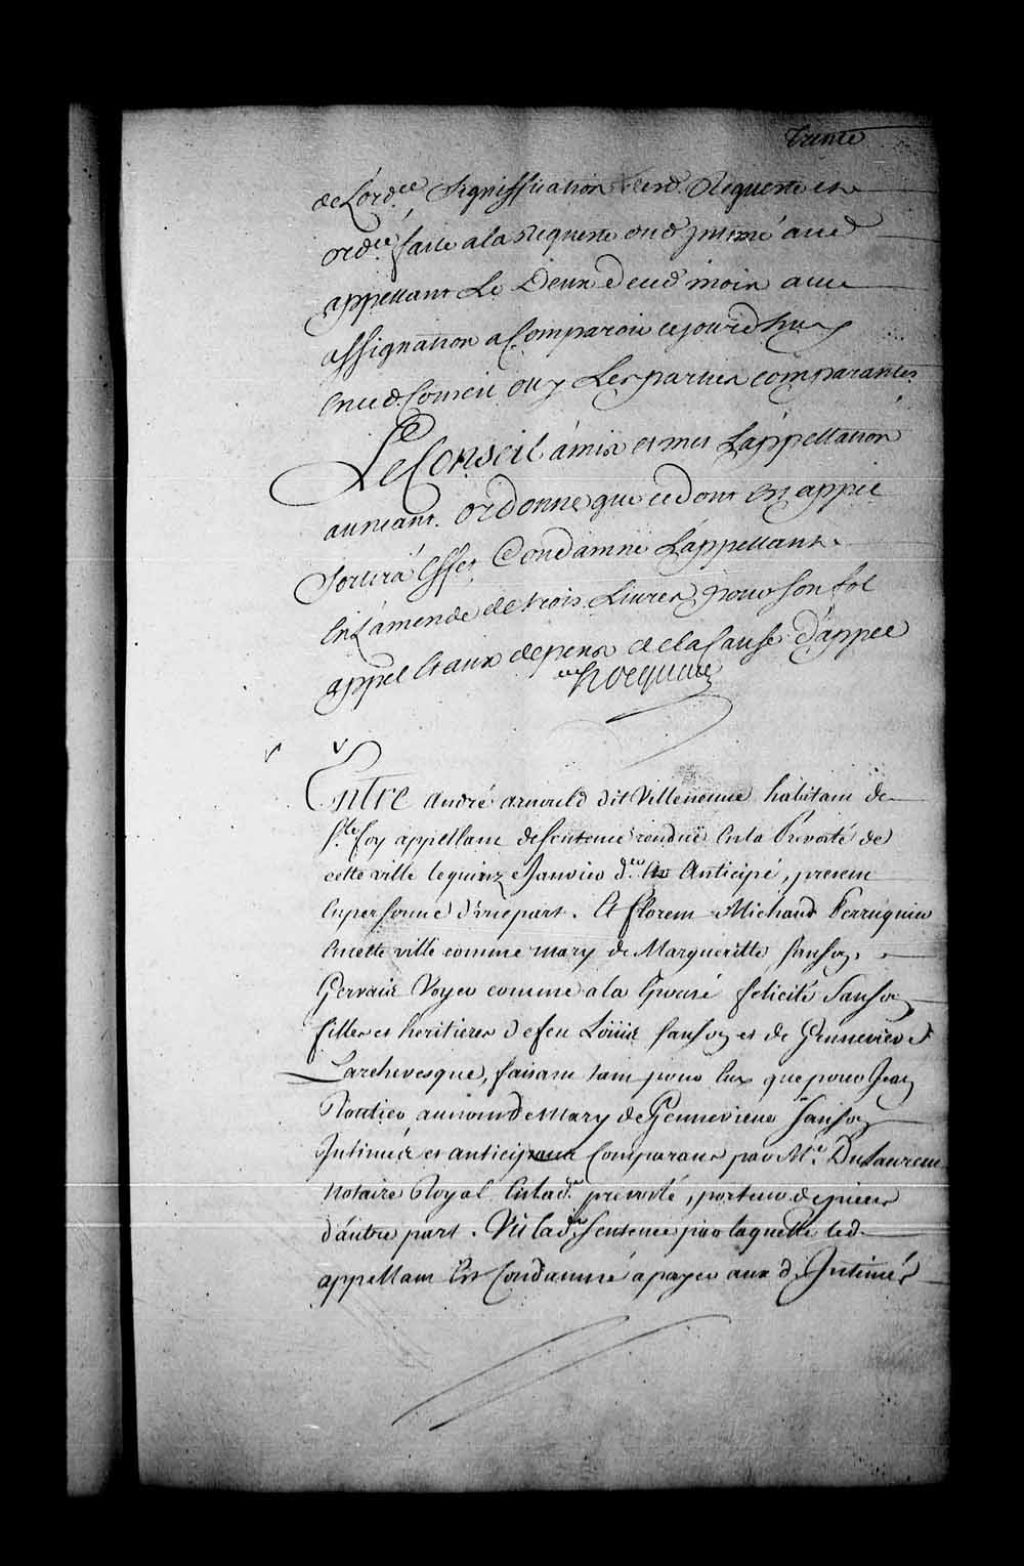 Trente
de L'ord.ce Signiffication desd. Requeste et
ord.ce faite a la Requeste dud Jntimé aud
appellant Le Deux de ced mois avec
assignation a Comparoir cejourdhuy
en ced. Conseil ouy Les parties comparantes
Le Conseil a mis et met L'appellation
au neant. ordonne que ce dont Est appel
Sortira Effet Condamne L'appellant
En L'amende de trois Livres pour son fol
appel Et aux depens de la Cause d'appel
Hocquart
Entre André arnould dit Villeneuve habitant de
S.te foy appellant de sentence rendue En la Prevosté de
cette ville le quinze Janvier d.er Et Anticipé, present
En personne d'une part. Et florent Michaud Perruquier
En cette ville comme mary de Margueritte Sanson,
Gervais Voyer comme ala Epousé felicité Sanson
filles et heritieres de feu Loüis Sanson et de Gennevieve
Larchevesque, faisant tant pour Eux que pour Jean
Routier au nom de Mary de Gennevieve Sanson
Jntimés et anticipans Comparant par M.e Dulaurent
Notaire Royal En lad.e prevosté, porteur de pieces
d'autre part. Vû lad.e sentence par laquelle led.
appellant Est Condamné a payer aux d. Jntimés